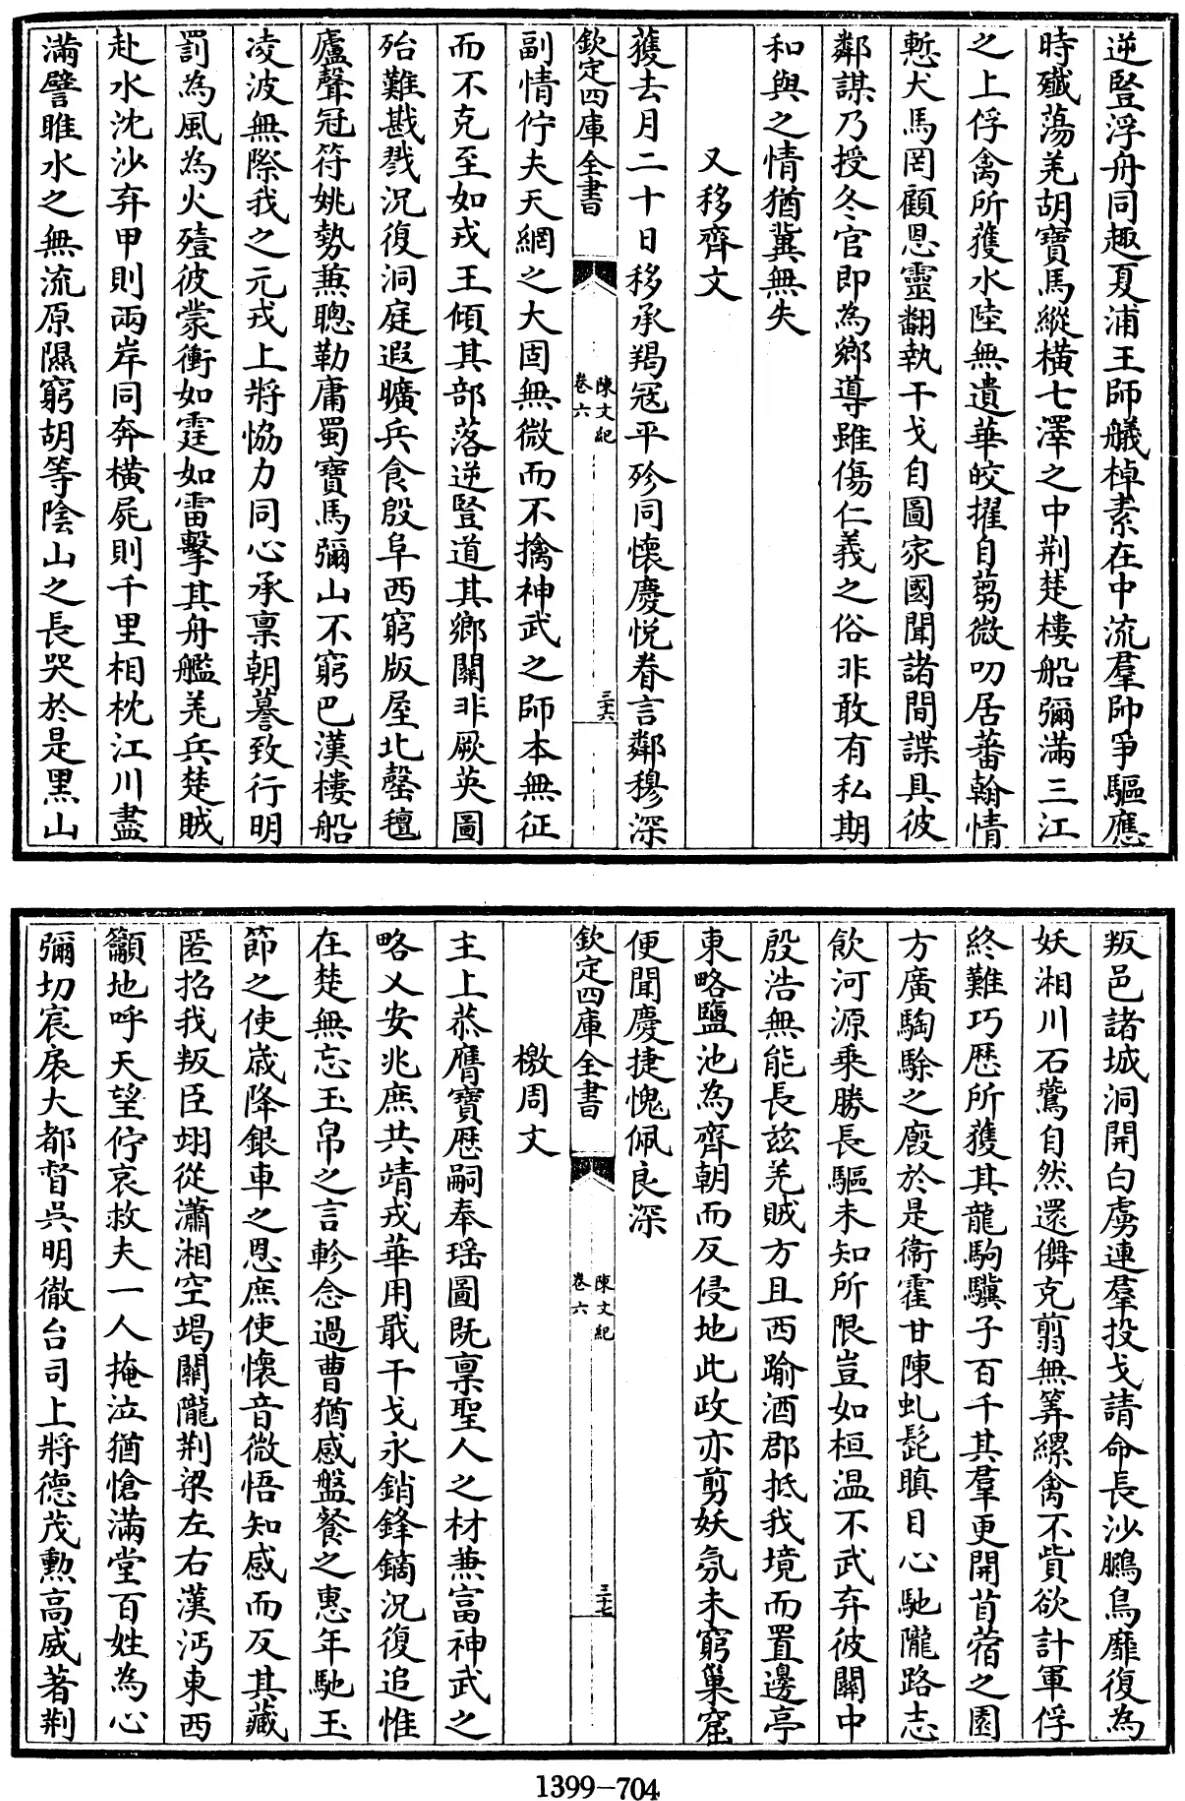 逆豎浮舟同趣夏浦王師艤棹素在中流羣帥爭驅應
時殱蕩羌胡寶馬縱横七澤之中荆楚樓船彌滿三江
之上俘禽所獲水陸無遺華皎擢自蒭微叨居蕃翰情
慙犬馬罔顧恩靈翻執干戈自圖家國聞諸間諜具彼
鄰謀乃授冬官即為鄉導雖傷仁義之俗非敢有私期
和與之情猶冀無失
又移齊文
獲去月二十日移承羯冦平殄同懷慶悦眷言鄰穆深
欽定四庫全書
陳文紀
卷六
三六
副情佇夫天網之大固無微而不擒神武之師本無征
而不克至如戎王傾其部落逆豎道其鄉關非厥英圖
殆難戡戮況復洞庭遐曠兵食殷阜西窮版屋北罄氊
廬聲冠符姚勢兼聰勒庸蜀寶馬彌山不窮巴漢樓船
凌波無際我之元戎上將協力同心承稟朝謩致行明
罰為風為火殪彼蒙衝如霆如雷擊其舟艦羌兵楚賊
赴水沈沙弃甲則兩岸同奔横屍則千里相枕江川盡
滿譬睢水之無流原隰窮胡等陰山之長哭於是黒山
叛邑諸城洞開白虜連羣投戈請命長沙鵩鳥靡復為
妖湘川石鷰自然還儛克翦無筭縲禽不貲欲計軍俘
終難巧厯所獲其龍駒驥子百千其羣更開苜蓿之園
方廣騊駼之廐於是衞霍甘陳虬髭瞋目心馳隴路志
飲河源乗勝長驅未知所限豈如桓温不武弃彼關中
殷浩無能長兹羌賊方且西踰酒郡抵我境而置邊亭
東略鹽池為齊朝而反侵地此政亦剪妖氛未窮巢窟
便聞慶捷愧佩良深
欽定四庫全書
陳文紀
卷六
三七
檄周文
主上恭膺寶厯嗣奉瑶圖既稟聖人之材兼富神武之
略乂安兆庶共靖戎華用戢干戈永銷鋒鏑況復追惟
在楚無忘玉帛之言軫念過曹猶感盤餐之惠年馳玉
節之使嵗降銀車之恩庶使懷音微悟知感而反其藏
匿招我叛臣翊從瀟湘空竭關隴荆梁左右漢沔東西
籲地呼天望佇哀救夫一人掩泣猶愴滿堂百姓為心
彌切宸扆大都督吳明徹台司上將德茂勲高威著荆
1399-704